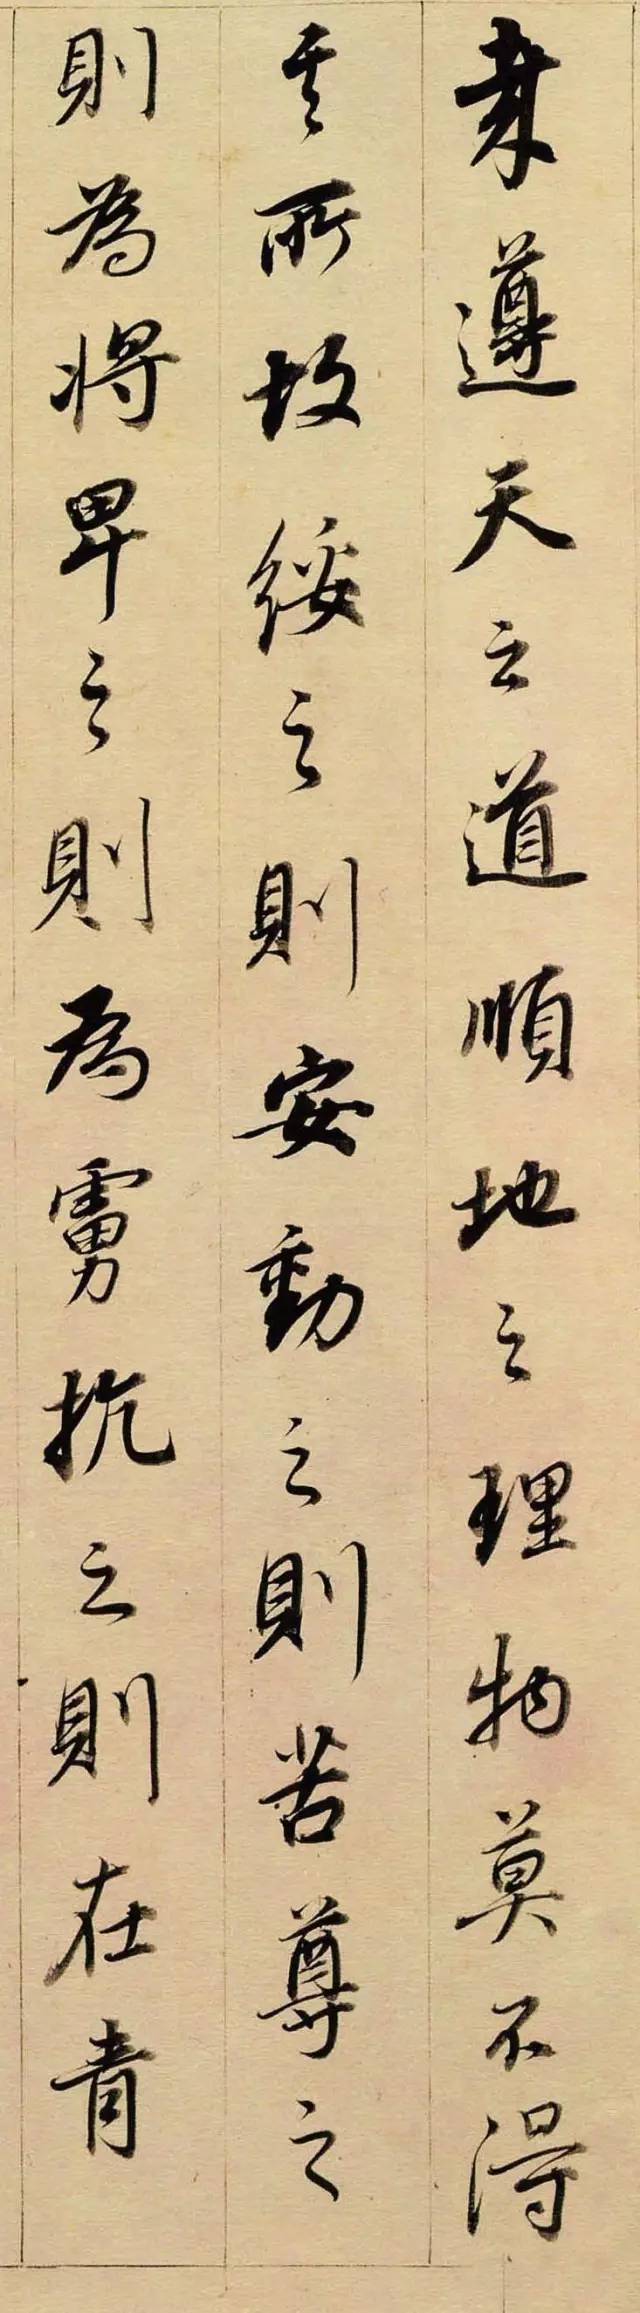 哉遵天之道順地之理物莫不得
其所故綏之則安動之則苦尊之
則為將卑之則為虜抗之則在青